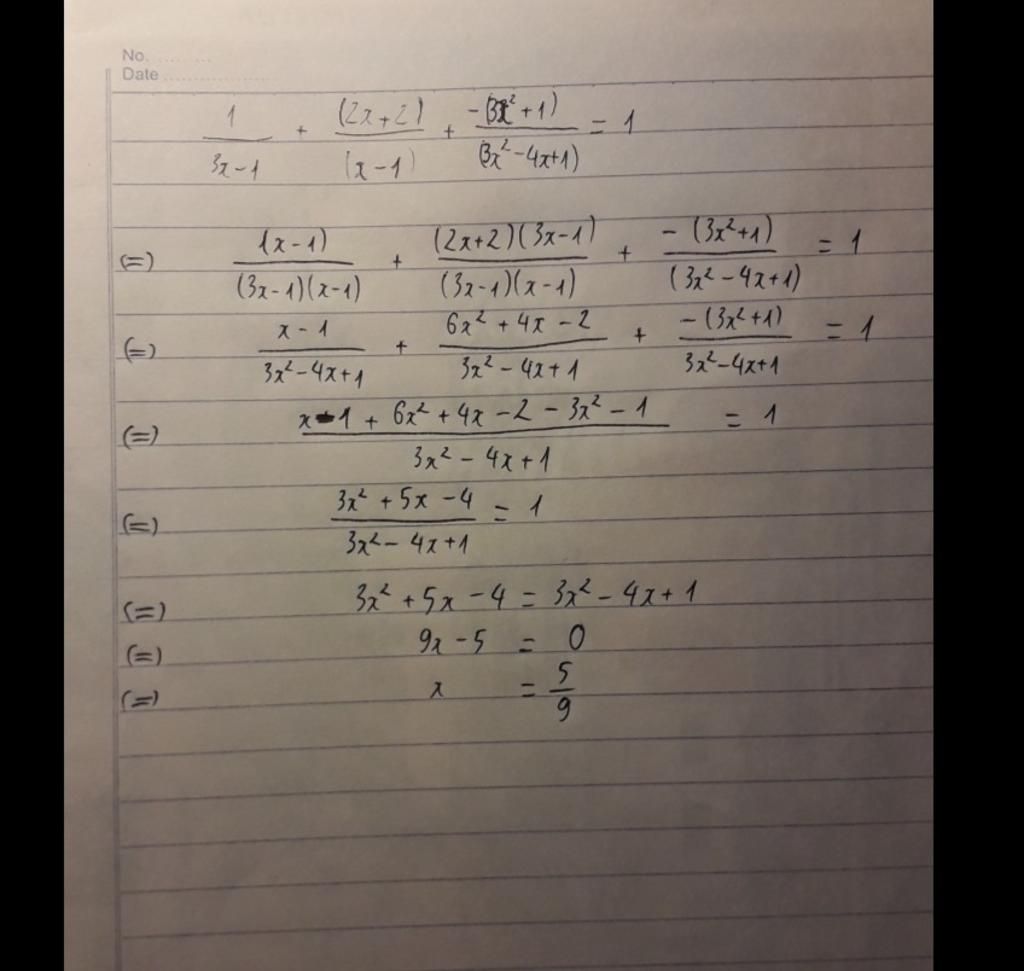 No. ..........
Date ....................
1/(3x-1) + (2x+2)/(x-1) + -(3x²+1)/(3x²-4x+1) = 1
(=) 1(x-1)/(3x-1)(x-1) + (2x+2)(3x-1)/(3x-1)(x-1) + -(3x²+1)/(3x²-4x+1) = 1
(=) x-1/3x²-4x+1 + 6x²+4x-2/3x²-4x+1 + -(3x²+1)/3x²-4x+1 = 1
(=) x-1+6x²+4x-2-3x²-1/3x²-4x+1 = 1
(=) 3x²+5x-4/3x²-4x+1 = 1
(=) 3x²+5x-4 = 3x²-4x+1
(=) 9x-5 = 0
(=) x = 5/9